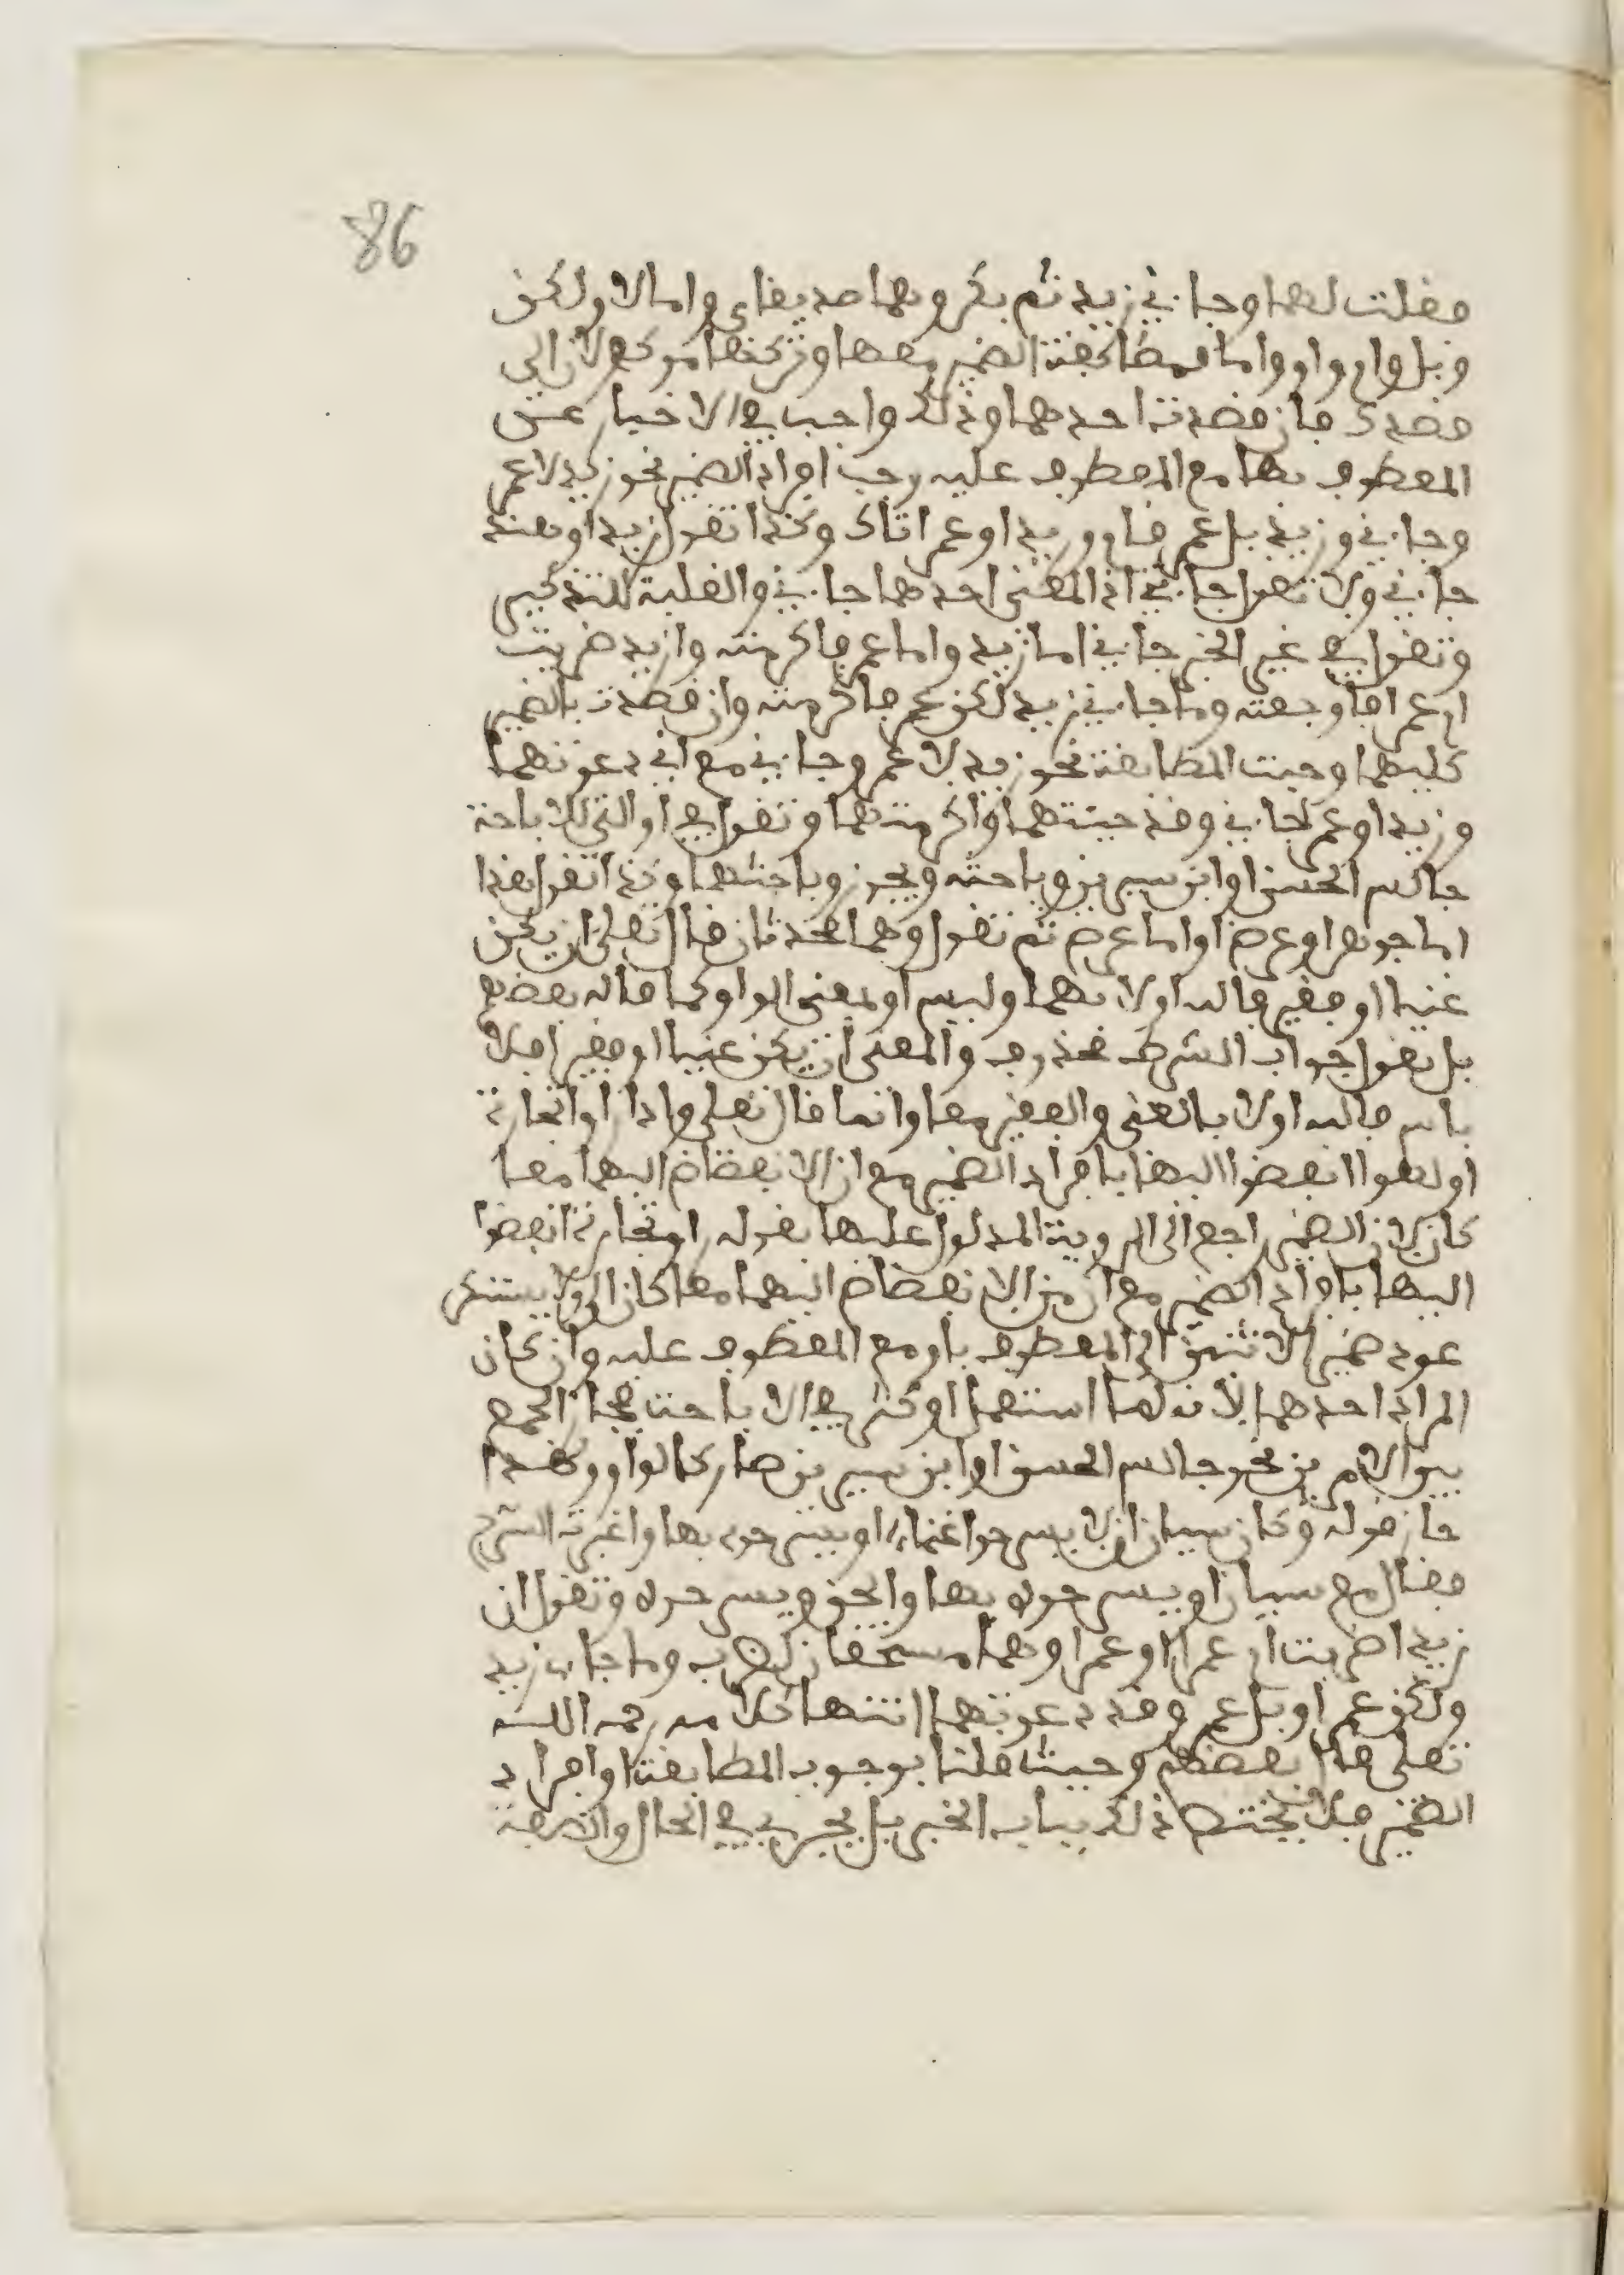 86
فقلت لهما وجاءني زيد ثم بكر وهما صديقاي واما لا ولكن
وبل وام واو واما فمطابقة الضمير معها وتركها موكول الى
قصدك فان قصدت احدهما وذلك واجب في الاخبار عن
المعطوف بها مع المعطوف عليه وجب افراد الضمير نحو زيد لا عمر
وجاءني وزيد بل عمر قام وزيد او عمر اتاك وكذا تقول زيد او هند
جاءني ولا تقول جاءتني اذ المعنى احدهما جاءني والغلبة للتذكير
وتقول في غير الخبر جاءني اما زيد واما عمر فاكرمته وازيد ضربت
ام عمرا فاوجعته وما جاءني زيد لكن عمر فاكرمته وان قصدت بالضمير
كليهما وجبت المطابقة نحو زيد لا عمر وجاءني مع اني دعوتهما
وزيد او عمر جاءني وقد جئتهما واكرمتهما وتقول في او التي للاباحة
جالس الحسن او ابن سيرين وباحثه ويجوز وباحثهما وكذا تقول هذا
اما جوهر او عرض او اما عرض ثم تقول وهما محدثان قال تعلى ان يكن
غنيا او فقيرا فالله اولا بهما وليس او بمعنى الواو كما قاله بعضهم
بل نقول جواب الشرط محذوف والمعنى ان يكن غنيا او فقيرا فلا
باس فالله اولا بالغني والفقير معا وانما قال تعلى واذا راوا تجارة
او لهوا انفضوا اليها بافراد الضمير مع ان الانفضاض اليهما معا
كان لان الضمير راجع الى الروية المدلول عليها بقوله راوا تجارة انفضوا
اليها بافراد الضمير مع ان من الانفضاض اليهما معا كان الرو ولا يستنكر
عود ضمير الاثنين الى المعطوف باو مع المعطوف عليه وان كان
المراد احدهما لانه لما استعمل او كثير في الاباحة فجاز الجمع
بين الامرين نحو جالس الحسن او ابن سيرين صار كالواو ولهذا
جاز قوله وكان سيان ان لا يسرحوا غنما او يسرحوه بها واغبرت السرح
فقال مع سيان او يسرحوه بها والحق ويسرحوه وتقول ان
زيدا ضربت ام عمرا او عمرا وهما مستحقان للضرب وما جاء زيد
ولكن عمر او بل عمر وقد دعوتهما انتهى كلامه رحمه الله
تعلى قال بعضهم وحيث قلنا بوجوب المطابقة او افراد
الضمير فلا يختص ذلك بباب الخبر بل يجري في الحال والصفة